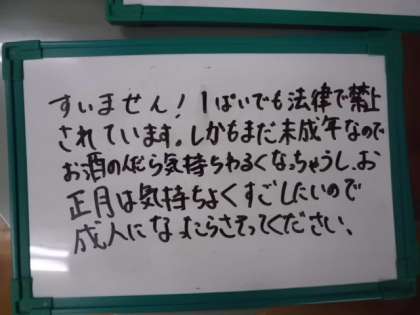 すいません！1ぱいでも法律で禁止
されています。しかもまだ未成年なので
お酒のんだら気持ちわるくなっちゃうし、お
正月は気持ちよくすごしたいので
成人になったらさそってください、